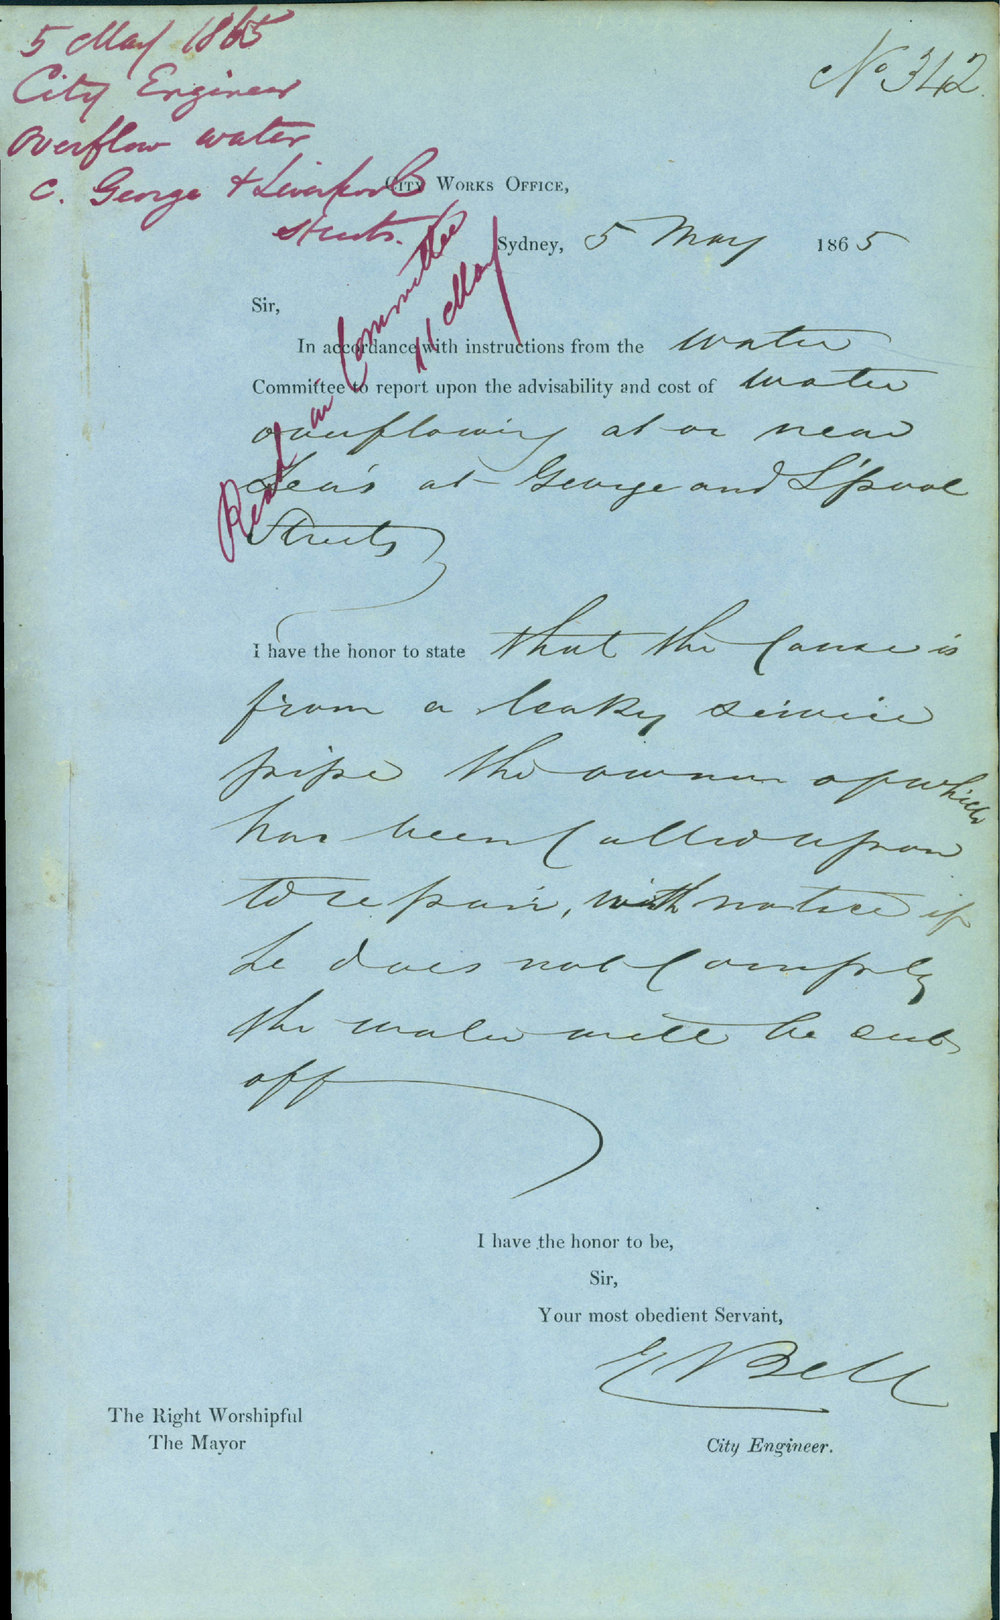 5 May 1865
City Engineer
Overflow water
c. George & Liverpool
Streets.
No 342.
City Works Office,
Sydney, 5 May 1865
Read in Committee
11 May
Sir,
In accordance with instructions from the Water
Committee to report upon the advisability and cost of Water
overflowing at or near
at George and L'pool
Streets
I have the honor to state that the Cause is
from a leaky service
pipe the owner of which
has been Called upon
to repair, with notice if
he does not Comply
the water will be cut
off
I have the honor to be,
Sir,
Your most obedient Servant,
E Bell
The Right Worshipful
The Mayor
City Engineer.